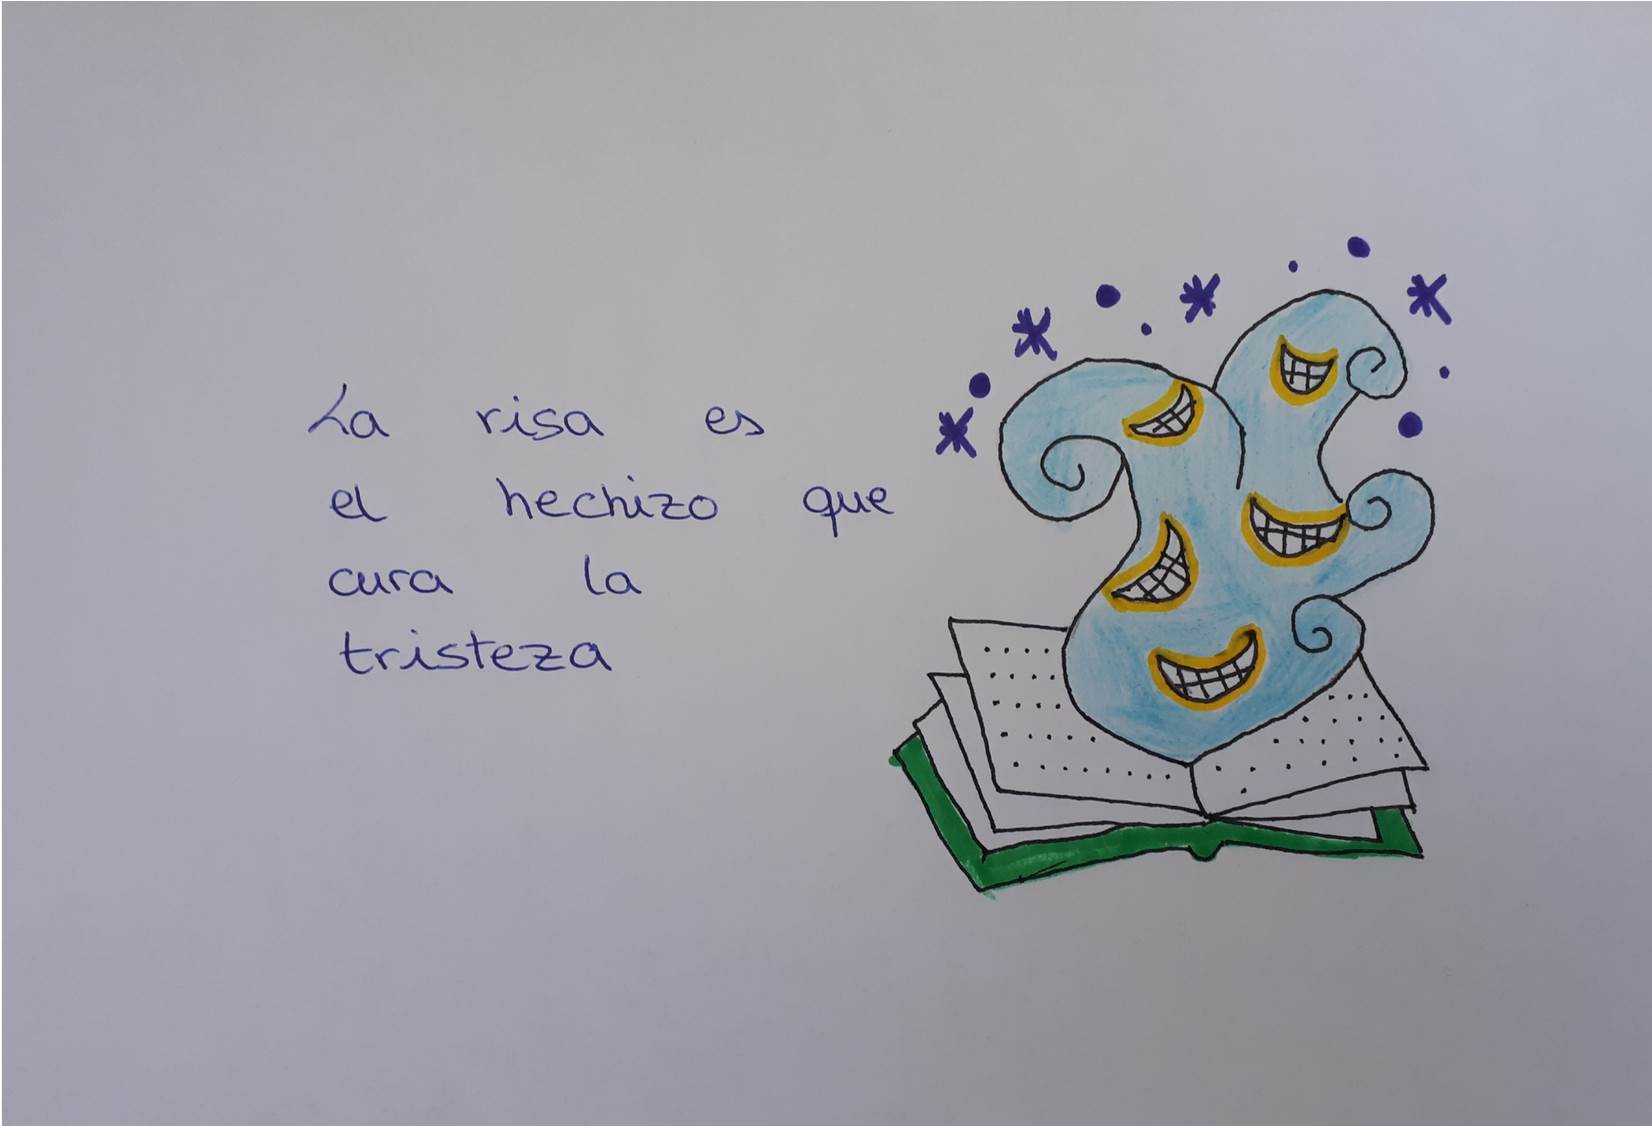 La risa es
el hechizo que
cura la
tristeza